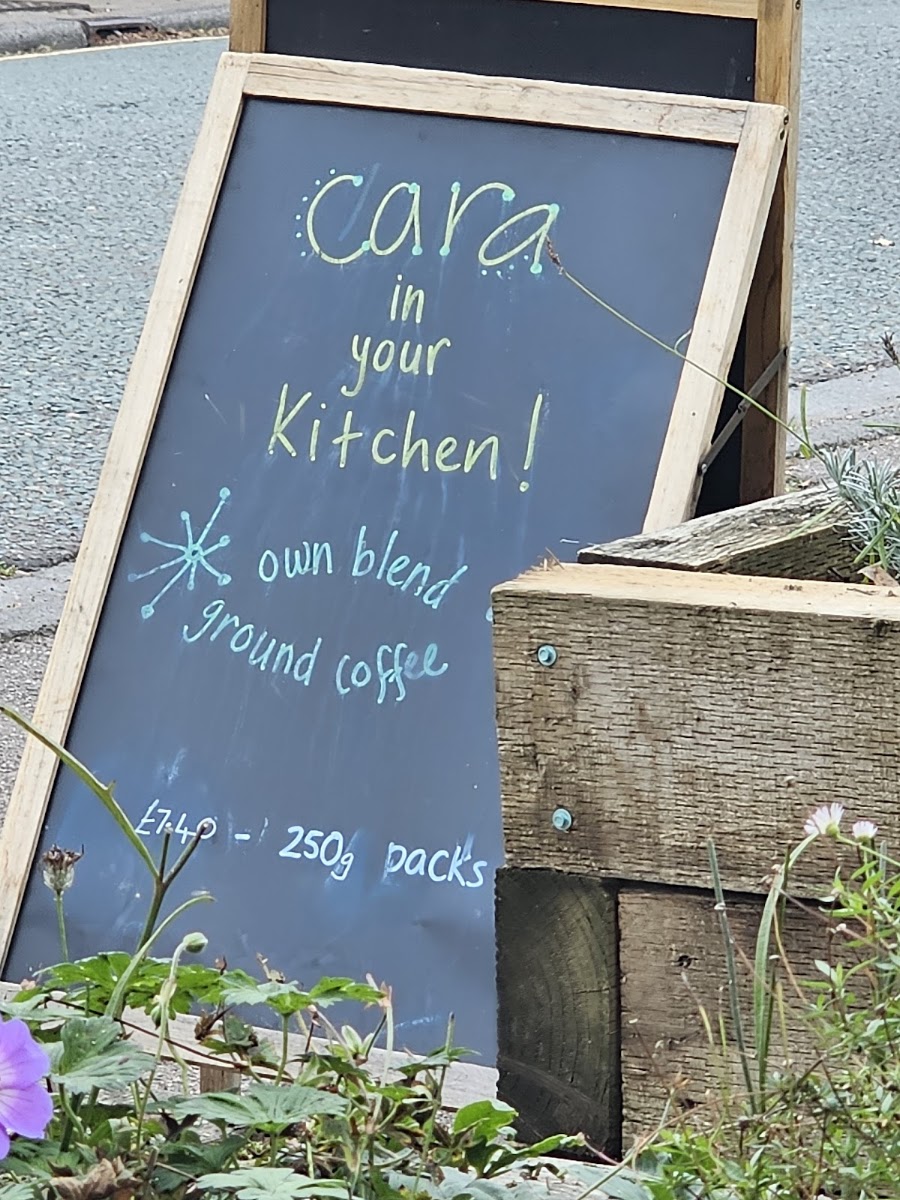 cara
in
your
Kitchen!
own blend
ground coffee
£7.40 - 250g packs